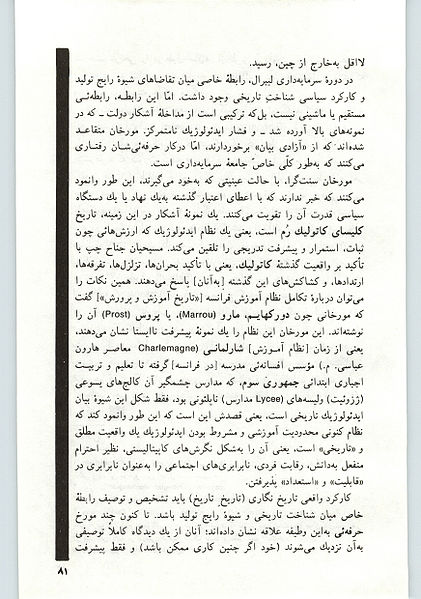 لااقل به‌خارج از چین، رسید.
در دورهٔ سرمایه‌داری لیبرال، رابطهٔ خاصی میان تقاضاهای شیوهٔ رایج تولید
و کارکرد سیاسی شناختِ تاریخی وجود داشت. امّا این رابطـه، رابطه‌ئـی
مستقیم یا ماشینی نیست، بل‌که ترکیبی است از مداخلهٔ آشکار دولت ـ که در
نمونه‌های بالا آورده شد ـ و فشار ایدئولوژیك نامتمرکز. مورخان متقاعـد
شده‌اند که از «آزادی بیان» برخوردارند، امّا درکار حرفه‌ئی‌شان رفتـاری
می‌کنند که به‌طور کلّی خاصّ جامعهٔ سرمایه‌داری است.
مورخـان سنت‌گرا، با حالت عینیتی که به‌خود می‌گیرند، این طور وانمود
می‌کنند که خبر ندارند که با اعطای اعتبار گذشته به‌یك نهاد یا یك دستگاه
سیاسی قدرت آن را تقویت می‌کنند. یك نمونهٔ آشکار در این زمینه، تاریخ
کلیسای کاتولیك رُم است، یعنی یك نظام ایدئولوژیك که ارزش‌هائی چون
ثبات، استمرار و پیشرفت تدریجی را تلقین می‌کند. مسیحیان جناح چپ با
تأکید بر واقعیت گذشتهٔ کاتولیك، یعنی با تأکید بحران‌ها، تزلزل‌ها، تفرقه‌ها،
ارتدادها، و کشاکش‌های این گذشته [به‌آنان] پاسخ می‌دهند. همین نکات را
می‌توان دربارهٔ تکامل نظام آموزش فرانسه [«تاریخ آموزش و پرورش»] گفت
که مورخانی چون دورکهایـم، مارو (Marrou)، یا پروس (Prost) آن را
نوشته‌اند. این مورخان این نظام را یك نمونهٔ پیشرفت ناایستا نشان می‌دهند،
یعنی از زمان [نظام آمـوزش] شارلمانـی (Charlemagne معاصـر هارون
عباسی. م.) مؤسس افسانه‌ئی مدرسه [در فرانسه] گرفته تا تعلیم و تربیـت
اجباری ابتدائی جمهوری سوم، که مدارس چشمگیر آن کالج‌های یسوعی
(ژزوئیت) ولیسه‌های (Lycee مدارس) ناپلئونی بود، فقط شکل این شیوهٔ بیان
ایدئولوژیك تاریخی است، یعنی قصدش این است که این طور وانمود کند که
نظام کنونی محدودیت آموزشی و مشروط بودن ایدئولوژیك یك واقعیت مطلق
و «تاریخی» است، یعنی آن را به‌شکل نگرش‌های کاپیتالیستی، نظیر احترام
منفعل به‌دانش، رقابت فردی، نابرابری‌های اجتماعی را به‌عنوان نابرابری در
«قابلیت» و «استعداد» پذیرفتن.
کارکرد واقعی تاریخ نگاری (تاریخِ تاریخ) باید تشخیص و توصیف رابطهٔ
خاص میان شناخت تاریخی و شیوهٔ رایج تولید باشد. تا کنون چند مورخ
حرفه‌ئی به‌این وظیفه علاقه نشان داده‌اند؛ آنان از یك دیدگاه کاملاً توصیفی
به‌آن نزدیك می‌شوند (خود اگر چنین کاری ممکن باشد) و فقط پیشرفت
۸۱